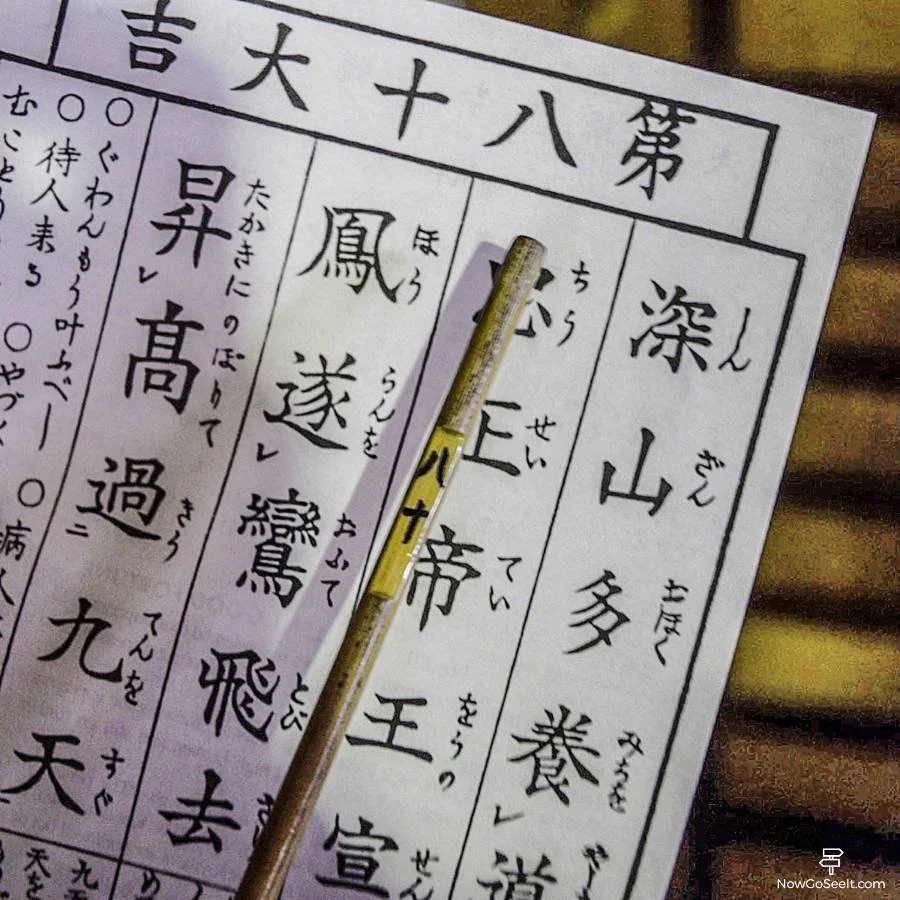 第八十大吉
深山多養道
しんざんおほくみちを
忠正帝王宣
ちうせいていをうのせん
鳳遂鸞飛去
ほうらんをおふてとび
昇高過九天
たかきにのぼりてきうてんをすぐ
○ぐわんもう叶ふべし ○病人
○待人来る ○やづく
八十
NowGoSeeIt.com